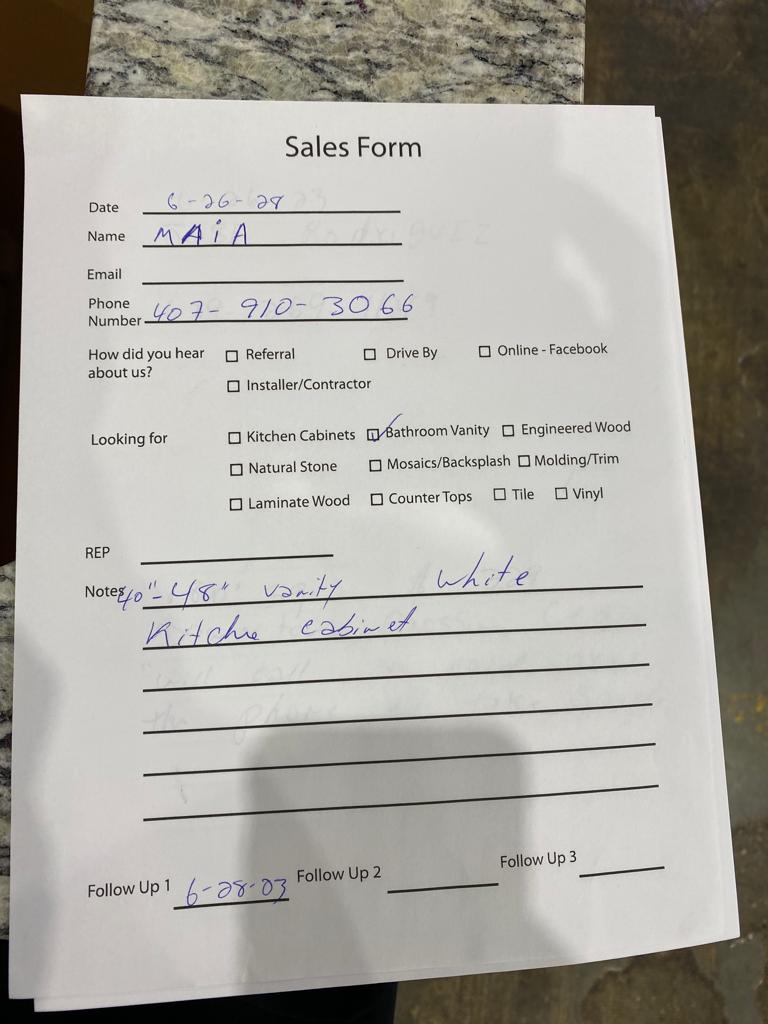 Sales Form
Date 6-26-28
Name MAiA
Email
Phone
Number 407-910-3066
How did you hear
about us?
Referral Drive By Online - Facebook
Installer/Contractor
Looking for
Kitchen Cabinets Bathroom Vanity Engineered Wood
Natural Stone Mosaics/Backsplash Molding/Trim
Laminate Wood Counter Tops Tile Vinyl
REP
Notes 40"-48" vanity white
Kitche cabinet
Follow Up 1 6-28-23 Follow Up 2 Follow Up 3